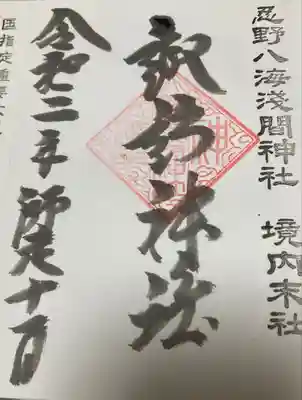 忍野八海淺間神社 境内末社
神社
令和二年師走十日
国指定重要